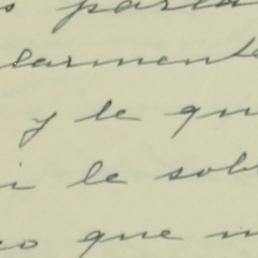 s para
larmente
y le qu
i le sob
co que m